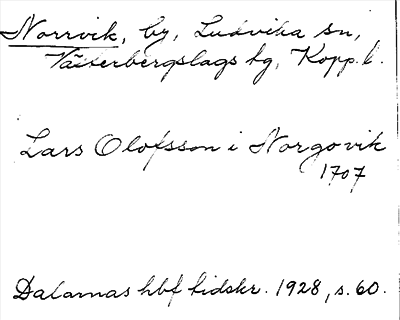 Norrvik, by, Ludvika sn,
Västerbergslags tg, Kopp. l.
Lars Olofsson i Norgovik
1707
Dalarnas hbf tidskr. 1928, s. 60.